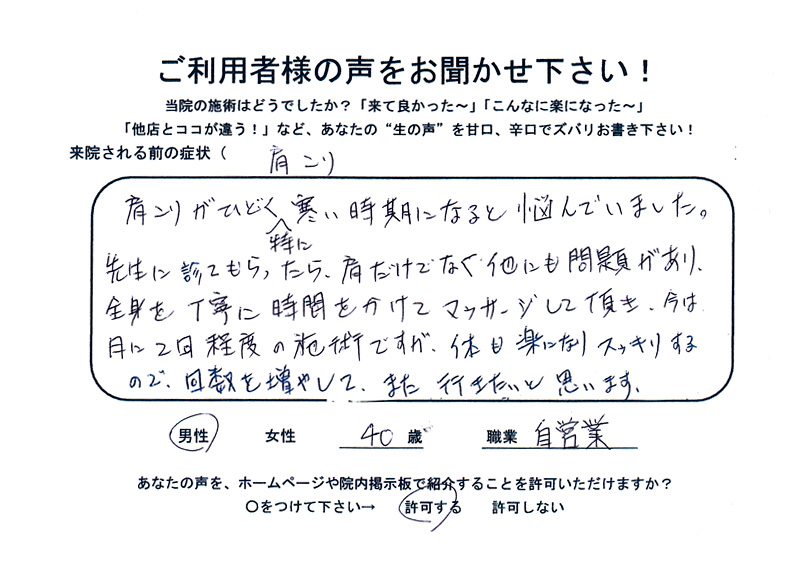 ご利用者様の声をお聞かせ下さい！
当院の施術はどうでしたか？「来て良かった～」「こんなに楽になった～」
「他店とココが違う！」など、あなたの“生の声”を甘口、辛口でズバリお書き下さい！
来院される前の症状（ 肩コリ
肩コリがひどく特に寒い時期になると悩んでいました。
先生に診てもらったら、肩だけでなく他にも問題があり、
全身を丁寧に時間をかけてマッサージして頂き、今は
月に2回程度の施術ですが、体も楽になりスッキリする
ので、回数を増やして、また行きたいと思います。
男性 女性 40歳 職業 自営業
あなたの声を、ホームページや院内掲示板で紹介することを許可いただけますか？
〇をつけて下さい→ 許可する 許可しない